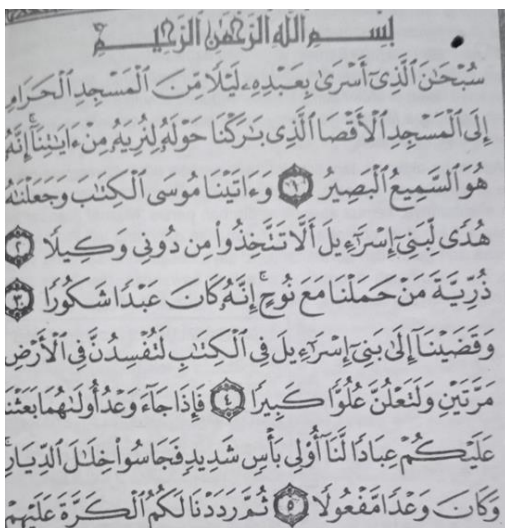 بِسْمِ ٱللَّهِ ٱلرَّحْمَٰنِ ٱلرَّحِيمِ
سُبْحَٰنَ ٱلَّذِىٓ أَسْرَىٰ بِعَبْدِهِۦ لَيْلًا مِّنَ ٱلْمَسْجِدِ ٱلْحَرَامِ
إِلَى ٱلْمَسْجِدِ ٱلْأَقْصَا ٱلَّذِى بَٰرَكْنَا حَوْلَهُۥ لِنُرِيَهُۥ مِنْ ءَايَٰتِنَآ ۚ إِنَّهُۥ
هُوَ ٱلسَّمِيعُ ٱلْبَصِيرُ ١ وَءَاتَيْنَا مُوسَى ٱلْكِتَٰبَ وَجَعَلْنَٰهُ
هُدًى لِّبَنِىٓ إِسْرَٰٓءِيلَ أَلَّا تَتَّخِذُوا۟ مِن دُونِى وَكِيلًا ٢
ذُرِّيَّةَ مَنْ حَمَلْنَا مَعَ نُوحٍ ۚ إِنَّهُۥ كَانَ عَبْدًا شَكُورًا ٣
وَقَضَيْنَآ إِلَىٰ بَنِىٓ إِسْرَٰٓءِيلَ فِى ٱلْكِتَٰبِ لَتُفْسِدُنَّ فِى ٱلْأَرْضِ
مَرَّتَيْنِ وَلَتَعْلُنَّ عُلُوًّا كَبِيرًا ٤ فَإِذَا جَآءَ وَعْدُ أُولَىٰهُمَا بَعَثْنَا
عَلَيْكُمْ عِبَادًا لَّنَآ أُو۟لِى بَأْسٍ شَدِيدٍ فَجَاسُوا۟ خِلَٰلَ ٱلدِّيَارِ ۚ
وَكَانَ وَعْدًا مَّفْعُولًا ٥ ثُمَّ رَدَدْنَا لَكُمُ ٱلْكَرَّةَ عَلَيْهِمْ